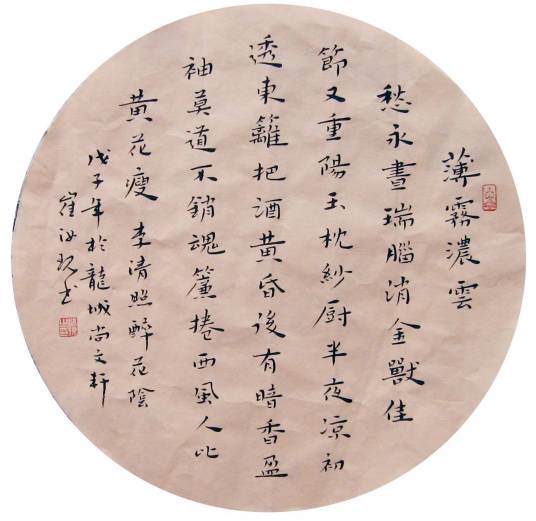 薄霧濃雲
愁永晝瑞腦消金獸佳
節又重陽玉枕紗厨半夜凉初
透東籬把酒黃昏後有暗香盈
袖莫道不銷魂簾捲西風人比
黃花瘦 李清照醉花陰
戊子年於龍城尚文軒
崔
書